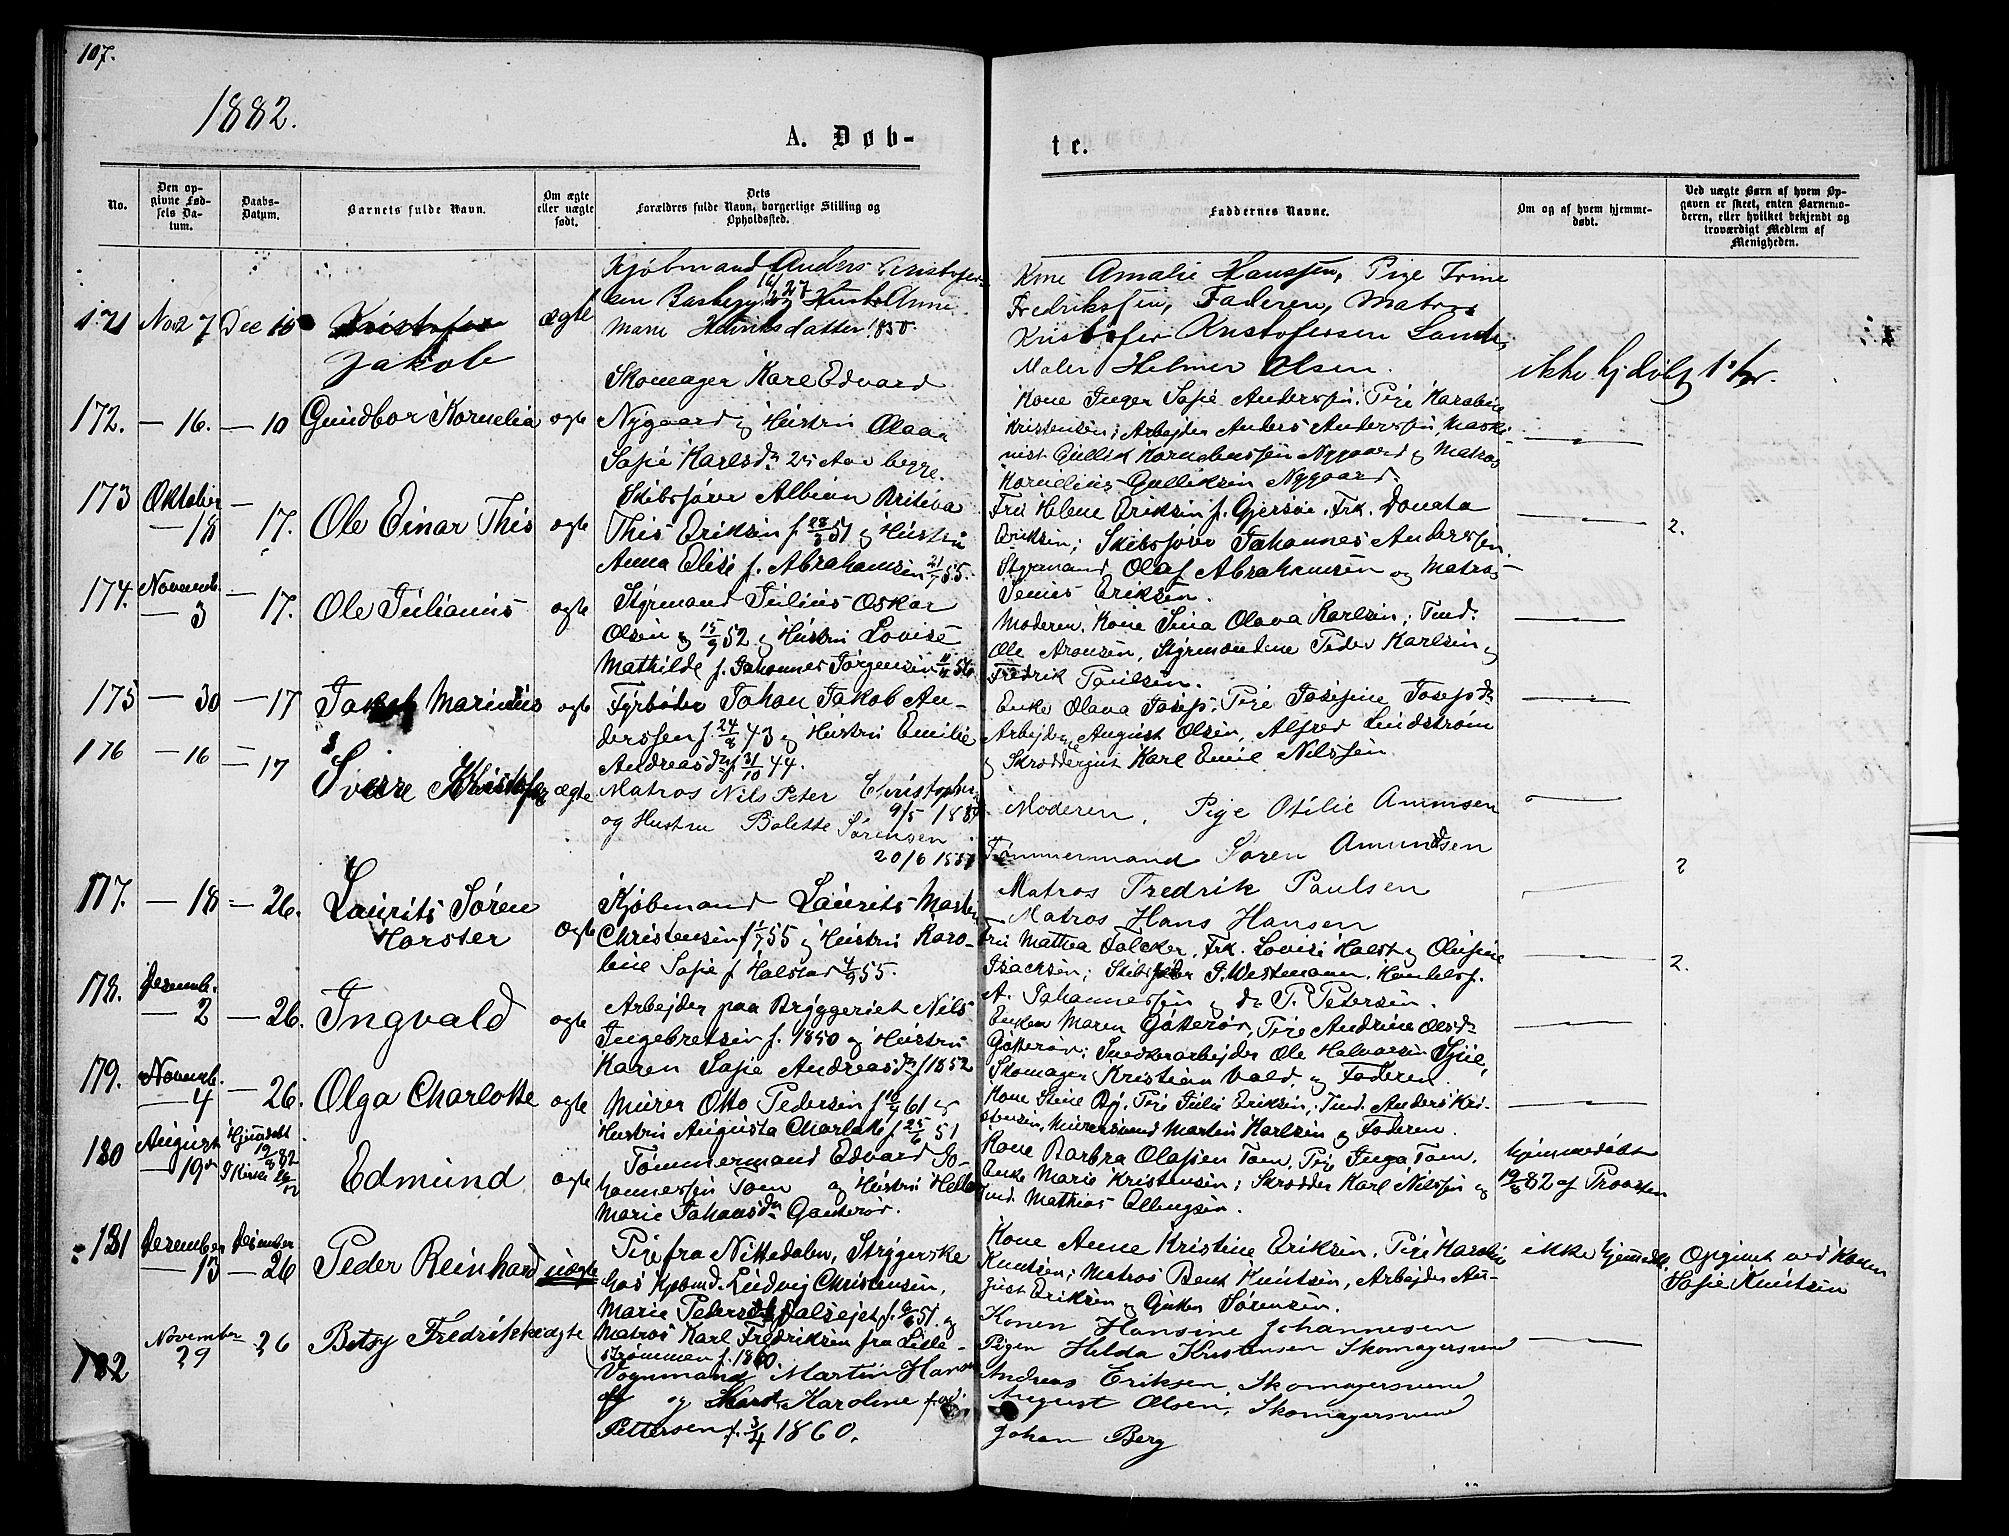 107.
1882.
A. Døb-
te.
No.
Den op-
givne Fød-
sels Da-
tum.
Daabs-
Datum.
Barnets fulde Navn.
Om ægte
eller uægte
født.
Dets
Forældres fulde Navn, borgerlige Stilling og
Opholdssted.
Faddernes Navne.
Om og af hvem hjemme-
døbt.
Ved uægte Børn af hvem Op-
gaven er skeet, enten Barnemo-
deren, eller hvilket bekjendt og
troværdigt Medlem af
Menigheden.
171 Nov 27 Dec 10 Kristofer ægte
Jakob
Kjøbmand Anders Kristofer-
sen Hustr Anne
Marie Henriksdatter 1850.
Kone Amalie Hanssen, Pige Trine
Fredrikssen, Faderen, Matros
Kristofer Kristofersen Sande,
Maler Helmer Olsen.
ikke hjdøbt
172. — 16. — 10 Gundbor Kornelia ægte
Skomager Karl Edvard
Nygaard og Hustru Olava
Sofie Karlsdr 25 Aar begge.
Kone Inger Sofie Anderssen, Pige Karoline
Kristensen; Arbejder Anders Anderssen, Maski-
nist Gullik Korneliussen Nygaard og Matros
Kornelius Gulliksen Nygaard.
173 Oktober
— 18 — 17. Ole Einar This ægte
Skibsfører Albian
This Eriksen f. 28/8 51 og Hustru
Anna Elise f. Abrahamsen 21/7 55.
Fru Helene Eriksen f. Gjersøe, Frk. Donata
Eriksen; Skibsfører Johannes Anderssen,
Styrmand Olaf Abrahamsen og Matros
Eriksen.
2.
174. Novemb.
— 3 — 17. Ole Julianus ægte
Styrmand Julius Oskar
Olsen 15/9 52 og Hustru Lovise
Mathilde f. Johannes Jørgensen 56
Moderen, Kone Sina Olava Karlsen; Tmd.
Ole Aronsen, Styrmændene Peder Karlsen og
Fredrik Paulsen.
175 — 30 — 17 Jakob Marinius ægte
Fyrbøder Johan Jakob An-
derssen f. 24/8 43 og Hustru Emilie
Andreasdr f 31/10 44.
Enke Olava Josefs; Pige Josefine Josefsdr
Arbejderne August Olsen, Alfred Lindstrøm
og Skræddergut Karl Emil Nilssen.
176 — 16 — 17 Sverre Kristofer ægte
Matros Nils Peter Christophersen
9/5
og Hustru Bolette Sørensen
20/6
Moderen, Pige Otilie Amunsen
Tømmermand Søren Amundsen
Matros Fredrik Paulsen
Matros Hans Hansen
2
177. — 18 — 26. Laurits Søren
Horster ægte
Kjøbmand Laurits Martin
Christensen f 1/7 55 og Hustru Karo-
line Sofie f. Halstad 4/9 55.
Fru Mathea Falcker, Frk. Lovise Halst og Olufine
Isachsen; Skibsfører G. Westmann, Handelsf.
A. Johannessen og do P. Petersen.
2.
178. Desemb.
— 2 — 26. Ingvald ægte
Arbejder paa Bryggeriet Nils
Ingebretsen f. 1850 og Hustru
Karen Sofie Andreasdr f 1852
Enken Maren Gøtterør, Pige Andrine Olsdr
Gøtterør; Snedkerarbejder Ole Halvorsen
Skomager Kristian Vold og Faderen.
179. Novemb.
— 4 — 26. Olga Charlotte ægte
Murer Otto Pedersen f 61 og
Hustru Augusta Charlotte f 25/6 51
Kone Stine Pige Julie Eriksen; Tmd. Anders Kri-
stensen, Murersvend Martin Karlsen og Faderen.
180 August
— 19de Hjemdøbt
19/8 82
I Kirken 26/12
Edmund ægte
Tømmermand Edvard Jo-
hannessen Tom og Hustru Helle
Marie Johansdr Gøtterør.
Kone Barbra Olafsen Tom, Pige Inga Tom,
Enke Marie Kristensen; Skrædder Karl Nilssen og
Tmd. Mathias Ellingsen.
hjemmedøbt
19/8 82 af Provsten
181 Desember Desember
— 13 — 26 Peder Reinhard uægte
Pige fra Nittedalen, Strygerske
hos Kjøbmd. Ludvig Christensen,
Marie Peders f. 51. og
Matros Karl Fredriksen fra Lille-
strømmen f. 1860.
Kone Anne Kristine Eriksen, Pige Karoline
Knutsen; Matros Bent Knutsen, Arbejder Au-
gust Eriksen og Sørensen.
ikke hjemdøbt.
Opgivet ved Konen
Sofie Knutsen
182 November
29 — 26 Betsy Fredrikke ægte
Vognmand Martin Hansen
og Karoline f
Pettersen f. 3/4 1860.
Konen Hansine Johannesen
Pigen Hilda Kristensen Skomagersvend
Andreas Eriksen, Skomagersvend
August Olsen, Skomagersvend
Johan Berg